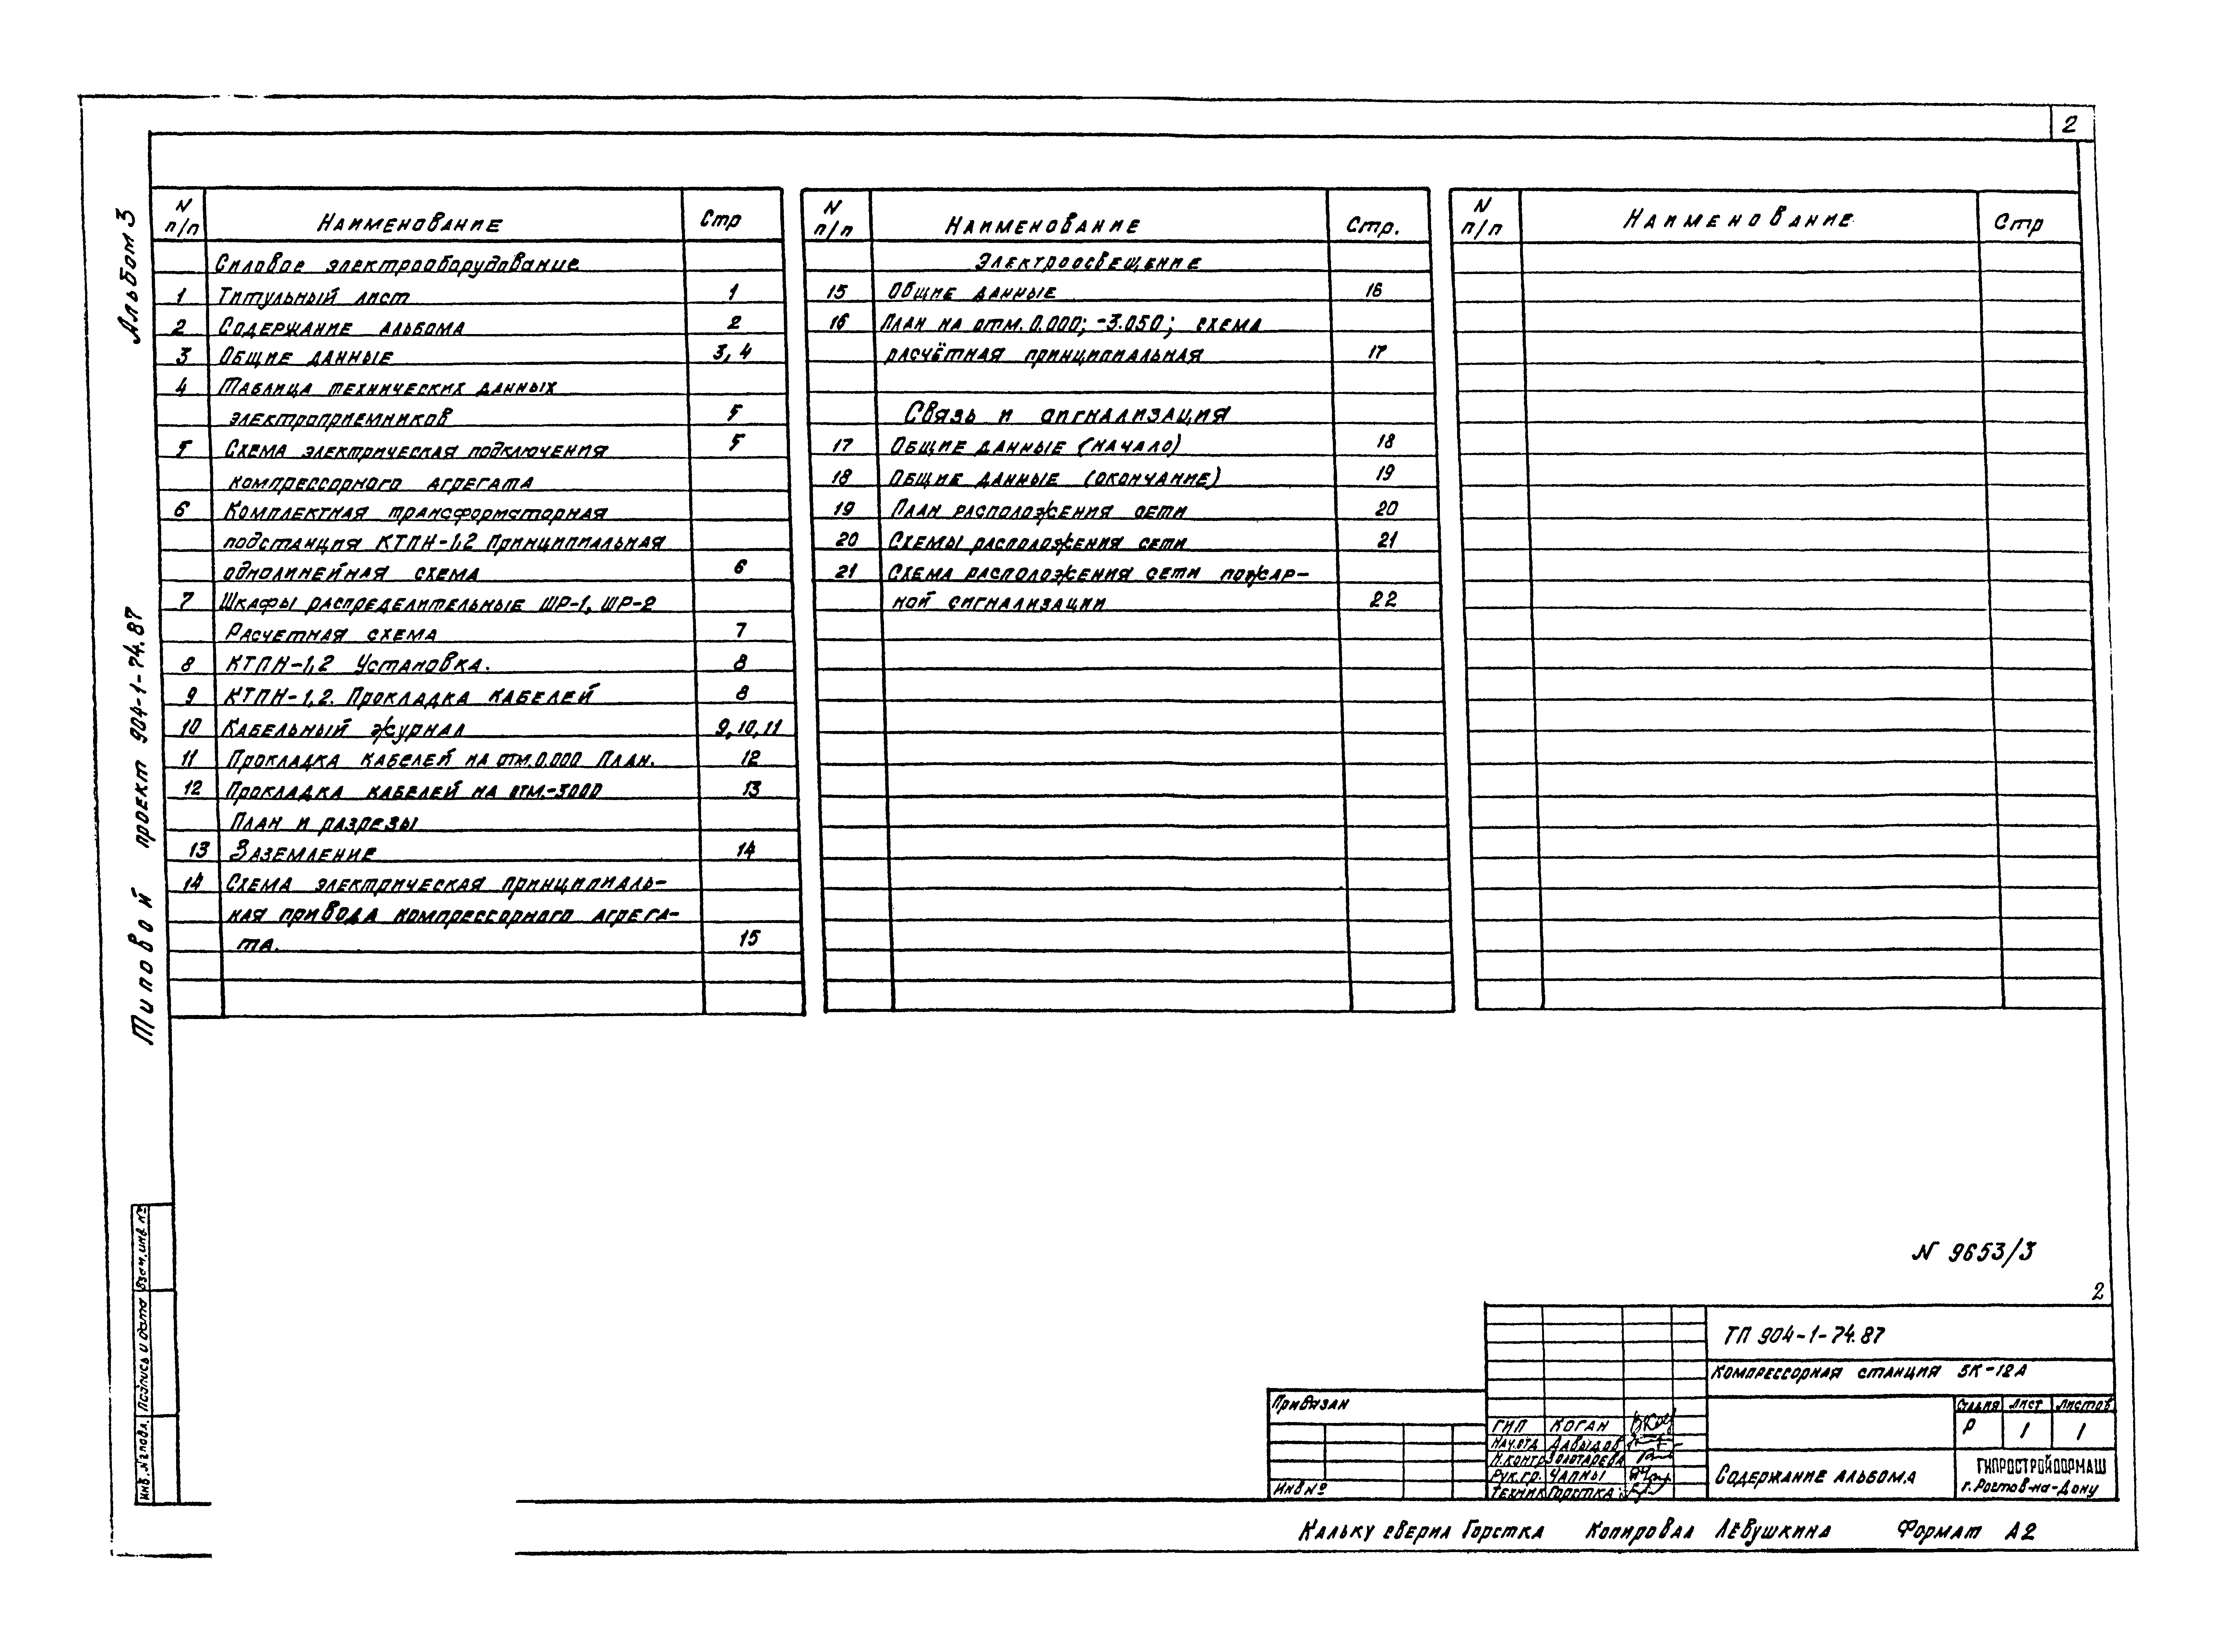 2
Альбом 3
Типовой проект 904-1-74.87
N п/п Наименование Стр
Силовое электрооборудование
1 Титульный лист 1
2 Содержание альбома 2
3 Общие данные 3, 4
4 Таблица технических данных
электроприемников 5
5 Схема электрическая подключения 5
компрессорного агрегата
6 Комплектная трансформаторная
подстанция КТПН-1,2 Принципиальная
однолинейная схема 6
7 Шкафы распределительные ШР-1, ШР-2
Расчетная схема 7
8 КТПН-1,2 Установка. 8
9 КТПН-1,2. Прокладка кабелей 8
10 Кабельный журнал 9,10,11
11 Прокладка кабелей на отм.0.000 План. 12
12 Прокладка кабелей на отм.-3000 13
План и разрезы
13 Заземление 14
14 Схема электрическая принципиаль-
ная привода компрессорного агрега-
та. 15
N п/п Наименование Стр.
Электроосвещение
15 Общие данные 16
16 План на отм. 0.000; -3.050; схема
расчётная принципиальная 17
Связь и сигнализация
17 Общие данные (начало) 18
18 Общие данные (окончание) 19
19 План расположения сети 20
20 Схемы расположения сети 21
21 Схема расположения сети пожар-
ной сигнализации 22
N п/п Наименование Стр
N 9653/3
2
ТП 904-1-74.87
Компрессорная станция 5К-12А
Привязан
Инв №
ГИП Коган
Нач.отд Давыдов
Н.контр Золотарева
Рук.гр. Чапны
Техник Горстка
Содержание альбома
Стадия Лист Листов
Р 1 1
ГИПРОСТРОЙДОРМАШ
г. Ростов-на-Дону
Инв. № подл. Подпись и дата Взам. инв. №
Кальку сверил Горстка Копировал Лёвушкина Формат А2